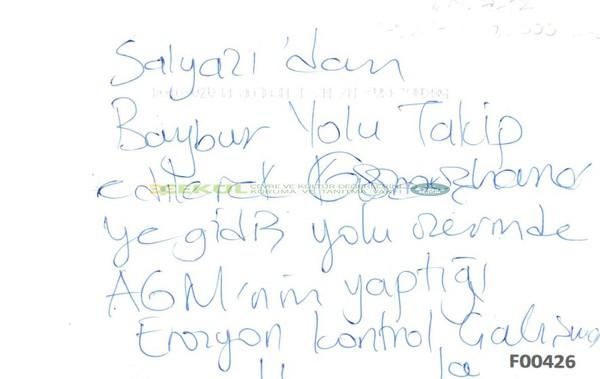 Salyazı'dan
Baybur Yolu Takip
edilerek Gümüşhane
ÇEKÜL ÇEVRE VE KÜLTÜR DEĞERLERİNİ
KORUMA VE TANITMA VAKFI
ye gidiş yolu üzerinde
AGM'nin yaptığı
Erozyon kontrol Çalışma
F00426